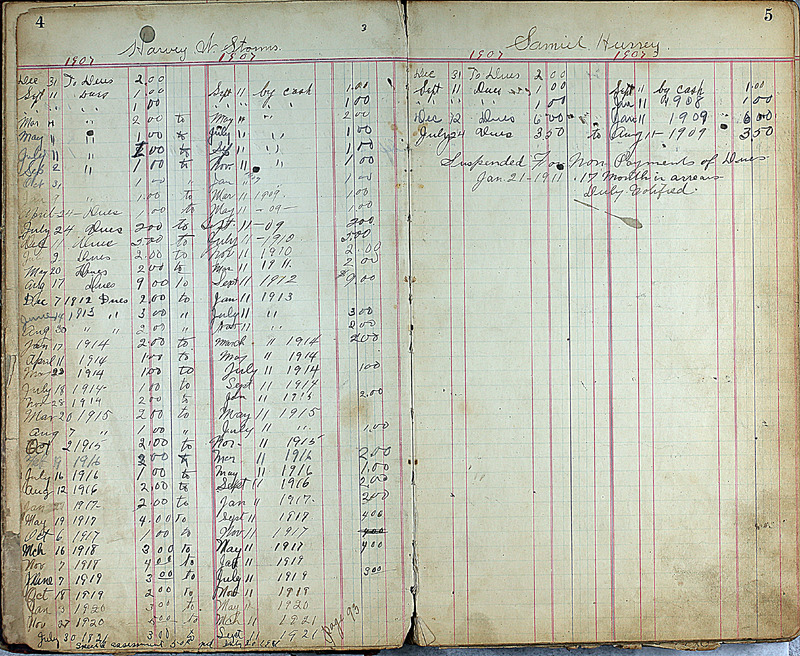 4
3
Harvey N. Storms.
1907 1907
Dec 31 To Dues 2.00
Sept 11 Dues 1.00 Sept 11 by cash 1.00
" " " 1.00 " " " 1.00
Mar 11 " 2.00 to May 11 " 2.00
May 11 " 1.00 to July 11 " 1.00
July 11 " 1.00 to Sep 11 " 1.00
Sep 2 " 1.00 to Nov 11 " 1.00
Oct 31 1.00 Jan 11 1.00
1.00 to Mar 11 1909. 1.00
April 24 - Dues 1.00 to May 11 - 09 - 1.00
July 24 Dues 200 to Sept 11 - 09 200
Dec 11 Dues 500 to July 11 - 1910 500
Dues 2.00 to Nov 11 1910 2.00
May 20 Dues 200 to Mar 11 1911. 2.00
Aug 17 Dues 9.00 to Sept 11 1912 9.00
Dec 7 1912 Dues 2.00 to Jan 11 1913
1913 " 3.00 " July 11 " 3.00
Aug 30 " " 2.00 " Nov 11 " 2.00
Jan 17 1914 2.00 to March " 11 1914 2.00
April 11 1914 1.00 to May 11 1914
1914 1.00 to July 11 1914 1.00
July 18 1914 1.00 to Sept 11 1914
Nov 28 1914 2.00 to Jan 11 1915 2.00
Mar 20 1915 2.00 to May 11 1915
Aug 7 " 1.00 " July 11 " 1.00
Oct 2 1915 2.00 to Nov. 11 1915
1916 2.00 to Mar 11 1916 2.00
July 16 1916 1.00 to May 11 1916 1.00
Aug 12 1916 2.00 to Sept 11 1916 2.00
Jan 1917 2.00 to Jan 11 1917. 2.00
May 19 1917 4.00 To Sept 11 1919 400
Oct 6 1917 1.00 to Nov 11 1917 400
Mch 16 1918 3.00 to May 11 1917 400
Nov 7 1918 4.00 to Jan 11 1919
June 7 1919 3.00 to July 11 1919 300
Oct 18 1919 2.00 to Nov 11 1919
Jan 3 1920 3.00 to May 11 1920
Nov 27 1920 5.00 to Mch 11 1921
July 30 1921 3.00 to Sept 11 1921
page 93
5
Samuel Hursey.
1907 1907
Dec 31 To Dues 2.00
Sept 11 Dues 1.00 Sept 11 by cash 1.00
" " " 1.00 Jan 11 1908 1.00
Dec 12 Dues 6.00 Jan 11 1909 6.00
July 24 Dues 3.50 to Aug 11 - 1909 3.50
Suspended For Non Payments of Dues
Jan. 21 - 1911. 17 Month in arrears
Duly notified.